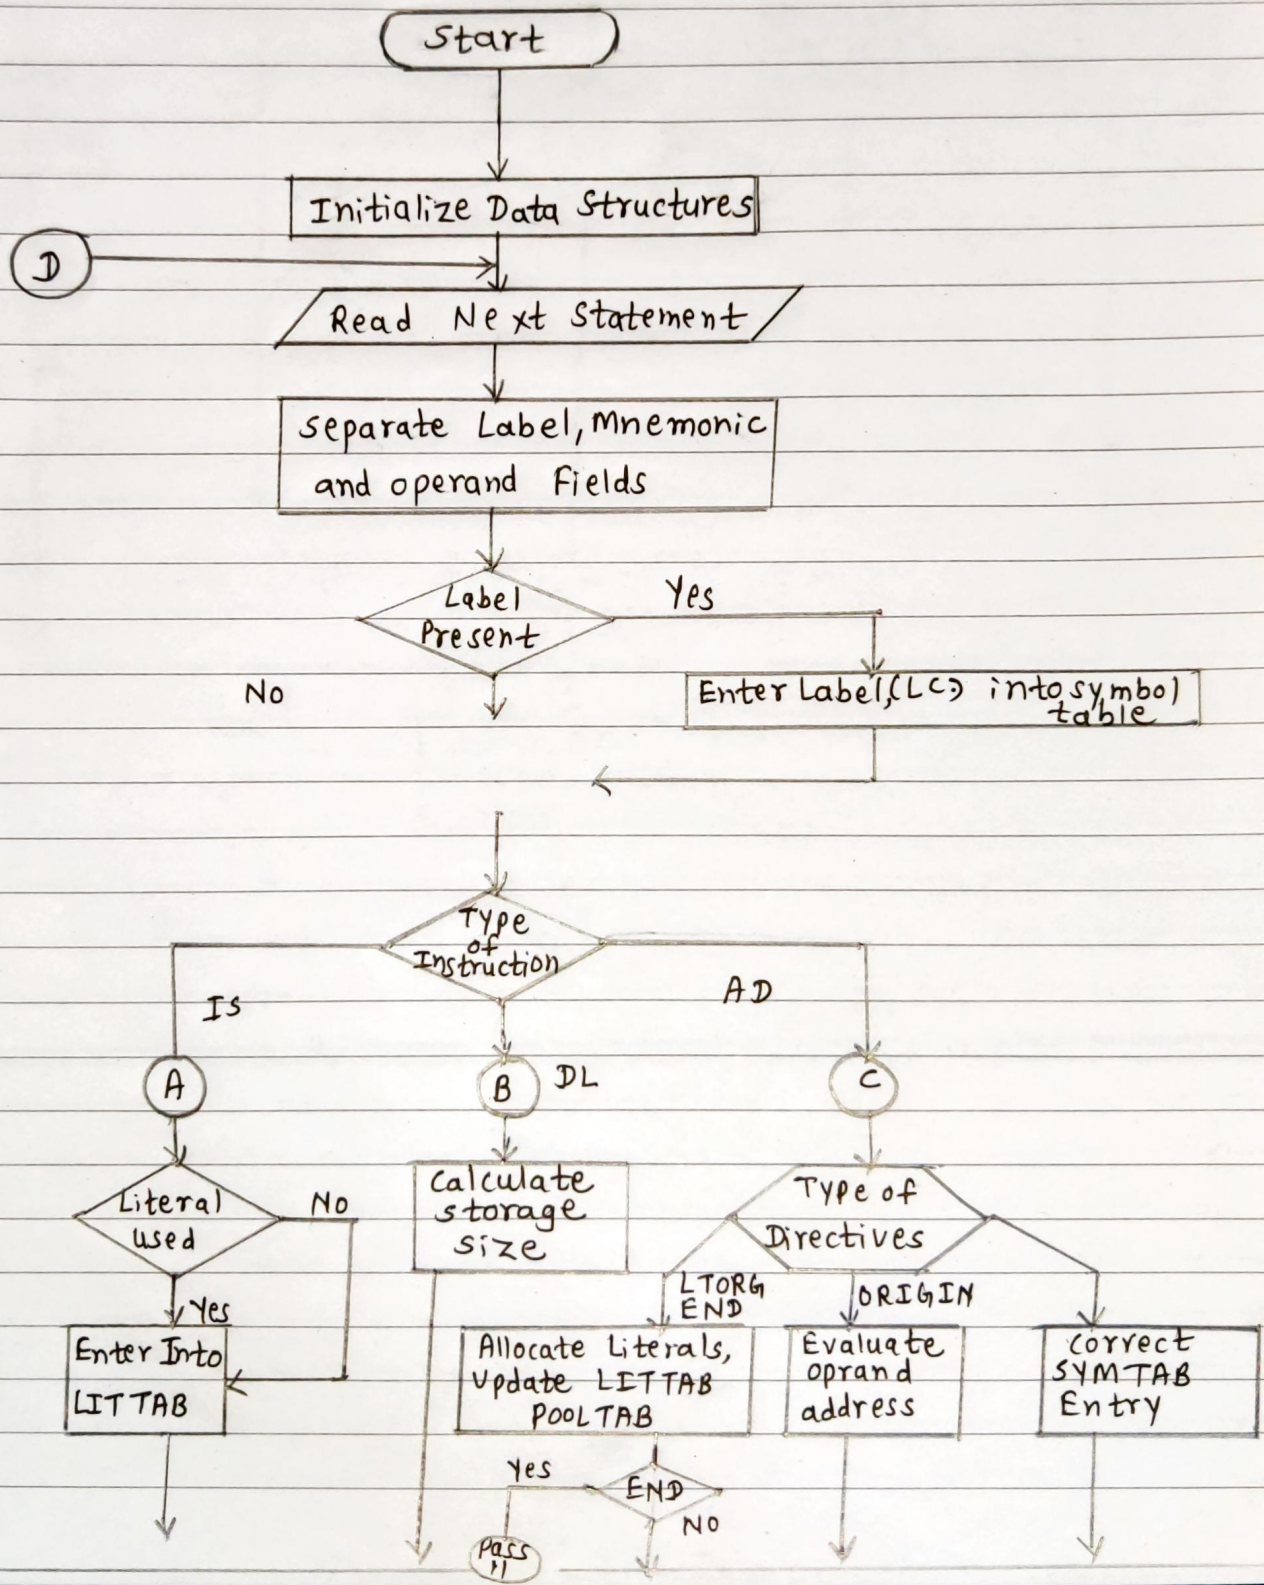 Start
Initialize Data Structures
D
Read Next Statement
Separate Label, Mnemonic
and operand Fields
Label
Present
Yes
No
Enter Label,(LC) into symbol
table
Type
of
Instruction
IS
AD
A
B
DL
C
Literal
used
No
Calculate
storage
size
Type of
Directives
Yes
LTORG
END
ORIGIN
Enter Into
LITTAB
Allocate Literals,
Update LITTAB
POOLTAB
Evaluate
oprand
address
Correct
SYMTAB
Entry
Yes
END
NO
Pass
II